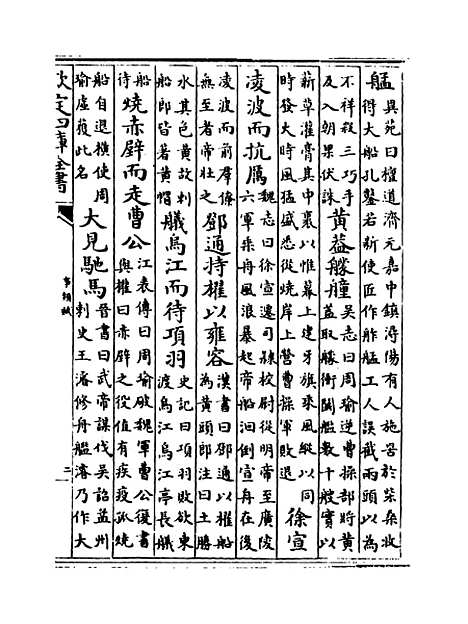 艋
異苑曰檀道濟元嘉中鎮潯陽有人施罟於柴桑收
得大船孔鑿若新使匠作舴艋工人誤截兩頭以為
不祥殺三巧手
及入朝果伏誅
黃蓋艨艟
吳志曰周瑜逆曹操部將黃
蓋取艨衝鬭艦數十艘實以
薪草灌膏其中裹以帷幕上建牙旗乘風縱以同
時發大時風猛盛悉從燒岸上營曹操軍敗退
徐宣
凌波而抗厲
魏志曰徐宣遷司隸校尉從明帝至廣陵
六軍乘舟風浪暴起帝船洄倒宣舟在後
凌波而前群僚
無至者帝壯之
鄧通持櫂以雍容
漢書曰鄧通以櫂船
為黃頭郎注曰土勝
水其色黃故刺
船郎皆著黃帽
艤烏江而待項羽
史記曰項羽敗欲東
渡烏江烏江亭長艤
船
待
燒赤壁而走曹公
江表傳曰周瑜破魏軍曹公復書
與權曰赤壁之役值有疾疫孤燒
船自退橫使周
瑜虛獲此名
大見馳馬
晉書曰武帝謀伐吳詔益州
刺史王濬修舟艦濬乃作大
欽定四庫全書
事類賦
二